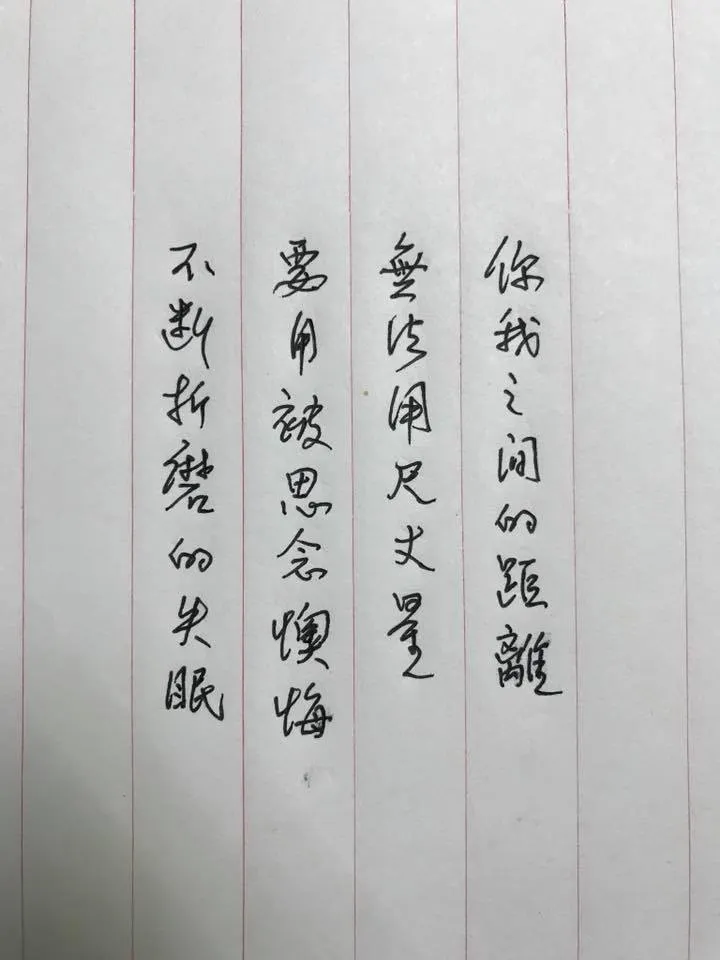 你我之间的距離
無法用尺丈量
要用被思念懊悔
不断折磨的失眠